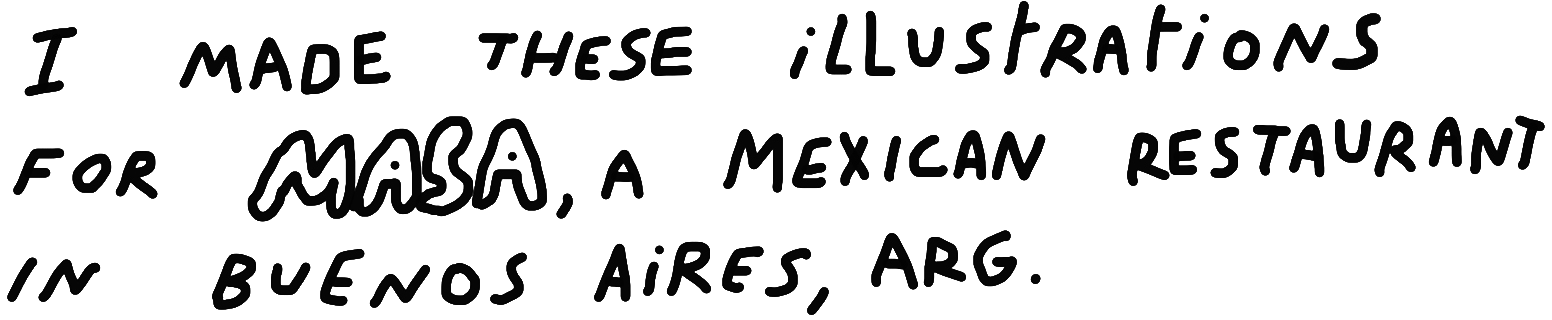 I MADE THESE iLLUStRAtiONS
FOR MASA, A MEXICAN RESTAURANT
IN BUENOS AiRES, ARG.